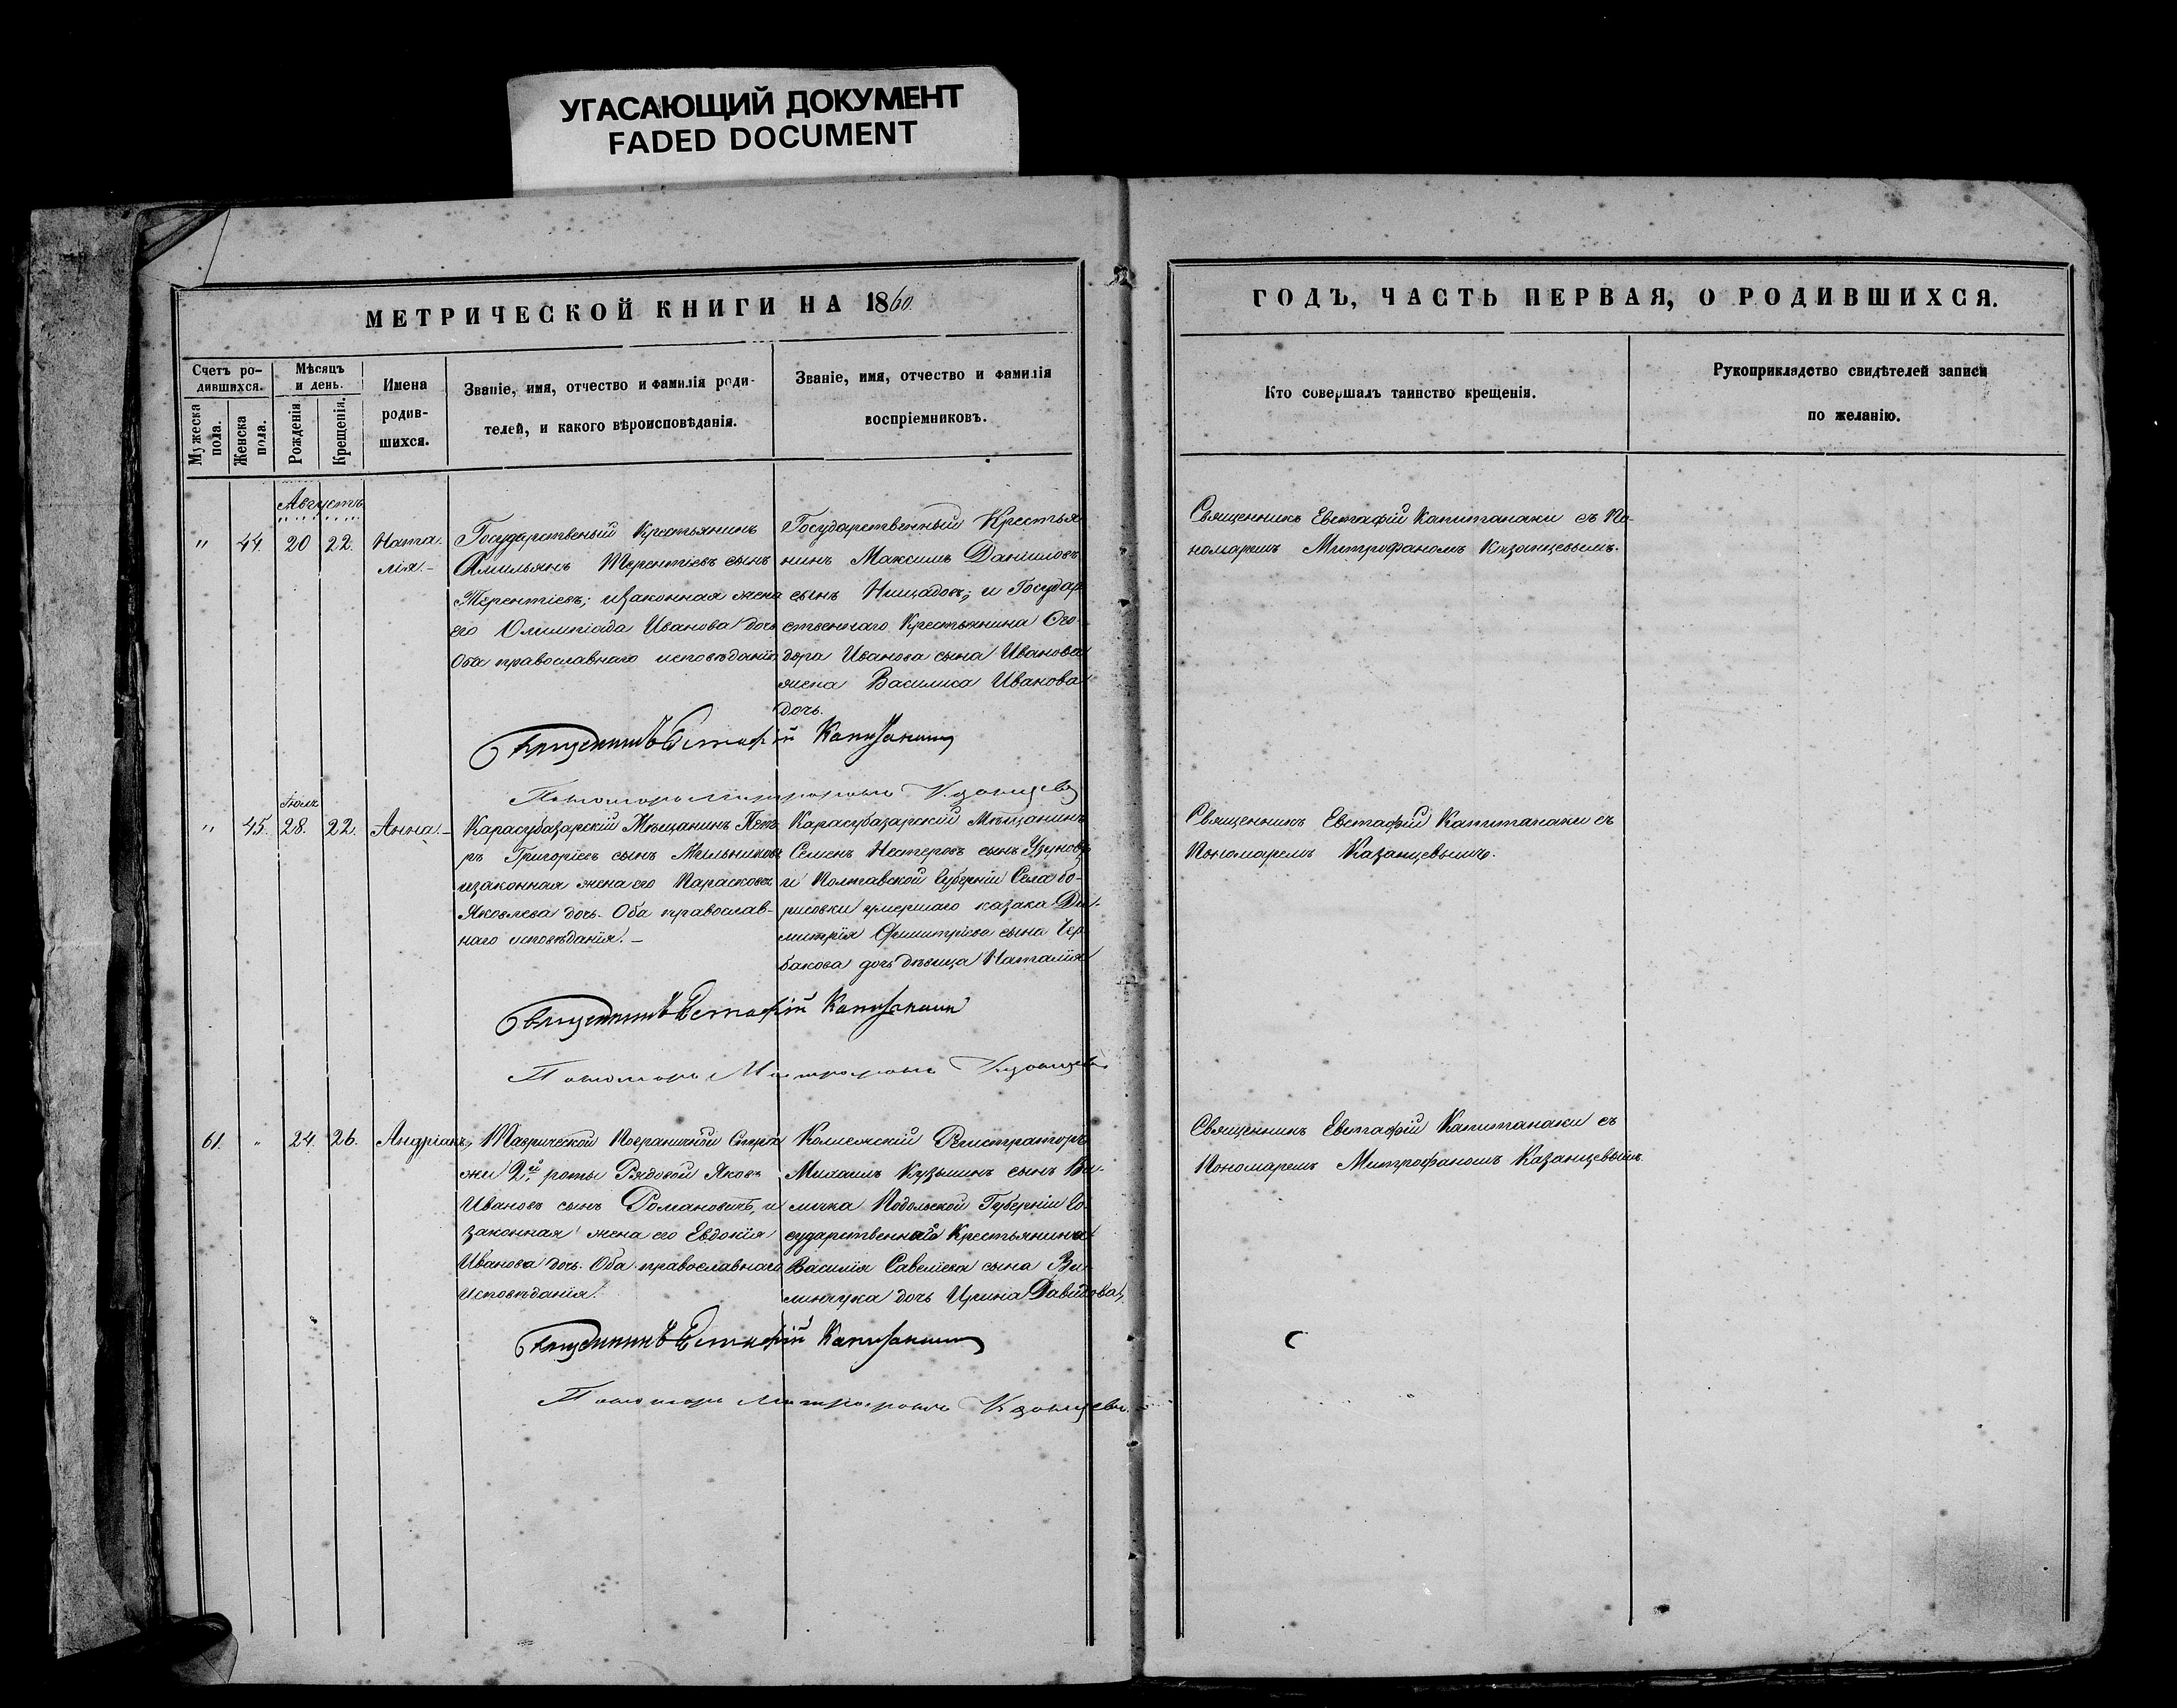 УГАСАЮЩИЙ ДОКУМЕНТ
FADED DOCUMENT
МЕТРИЧЕСКОЙ КНИГИ НА 1860.
Счетъ ро-
дившихся.
Мужеска
пола.
Женска
пола.
Мѣсяцъ
и день.
Рожденія.
Крещенія.
Имена
родив-
шихся.
Званіе, имя, отчество и фамилія роди-
телей, и какого вѣроисповѣданія.
Званіе, имя, отчество и фамилія
воспріемниковъ.
Августъ
" 44. 20 22. Ната-
лія.-
Государственый Крестьянинъ
Емильянъ Терентіевъ сынъ
Терентіевъ; изаконная жена
его Олимпіада Иванова дочь
Оба православнаго исповѣданія
Государственный Крестья-
нинъ Максимъ Даниловъ
сынъ и Государ
ственнаго Крестьянина Ѳео-
дора Иванова сына Иванова
жена Василиса Иванова
дочь.
Священникъ Евстафій Капитанаки
Пономарь Митрофанъ Казанцевъ
Іюля
" 45. 28. 22. Анна.-
Карасубазарскій Мѣщанинъ Пет-
ръ Григоріевъ сынъ Мыльниковъ
изаконная жена его Параскова
Яковлева дочь. Оба православ-
наго исповѣданія.-
Карасубазарскій Мѣщанинъ
Семенъ Нестеровъ сынъ Узуновъ
и Полтавской Губерніи Села Бо-
рисовки умершаго казака Ди-
митрія Димитріева сына Чер-
бакова дочь дѣвица Наталія
Священникъ Евстафій Капитанаки
Пономарь Митрофанъ Казанцевъ
61. " 24. 26. Андріанъ,
Таврической Пограничной Стра-
жи 2й роты Рядовой Яковъ
Ивановъ сынъ Романовичъ, и
законная жена его Евдокія
Иванова дочь. Оба православнаго
Исповѣданія.
Колежскій Регистраторъ
Михаилъ Кузьминъ сынъ
Подольской Губерніи Го-
сударственнаго Крестьянина
Василія Савеліева сына
дочь Ирина Давидова.
Священникъ Евстафій Капитанаки
Пономарь Митрофанъ Казанцевъ
ГОДЪ, ЧАСТЬ ПЕРВАЯ, О РОДИВШИХСЯ.
Кто совершалъ таинство крещенія.
Рукоприкладство свидѣтелей записи
по желанію.
Священникъ Евстафій Капитанаки съ По-
номаремъ Митрофаномъ Казанцевымъ.
Священникъ Евстафій Капитанаки съ
Пономаремъ Казанцевымъ.
Священникъ Евстафій Капитанаки съ
Пономаремъ Митрофаномъ Казанцевымъ.